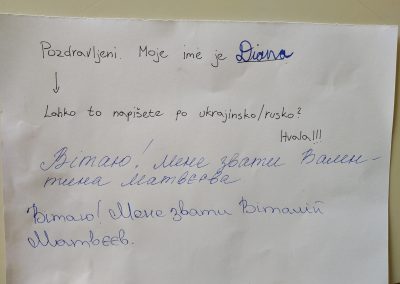 Pozdravljeni. Moje ime je Diana
↓
Lahko to napišete po ukrajinsko/rusko?
Hvala!!!
Вітаю! мене звати Вален-
тина Матвєєва
Вітаю! Мене звати Віталій
Матвєєв.